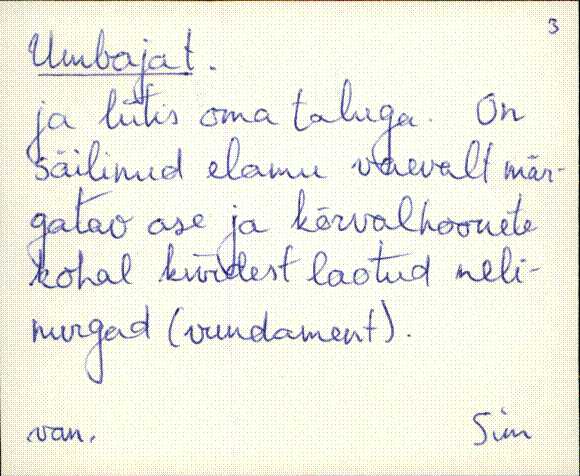 3
Umbajat.
ja liitis oma taluga. On
säilinud elamu vaevalt mär-
gatav ase ja kõrvalhoonete
kohal kividest laotud neli-
nurgad (vundament).
van. Sim